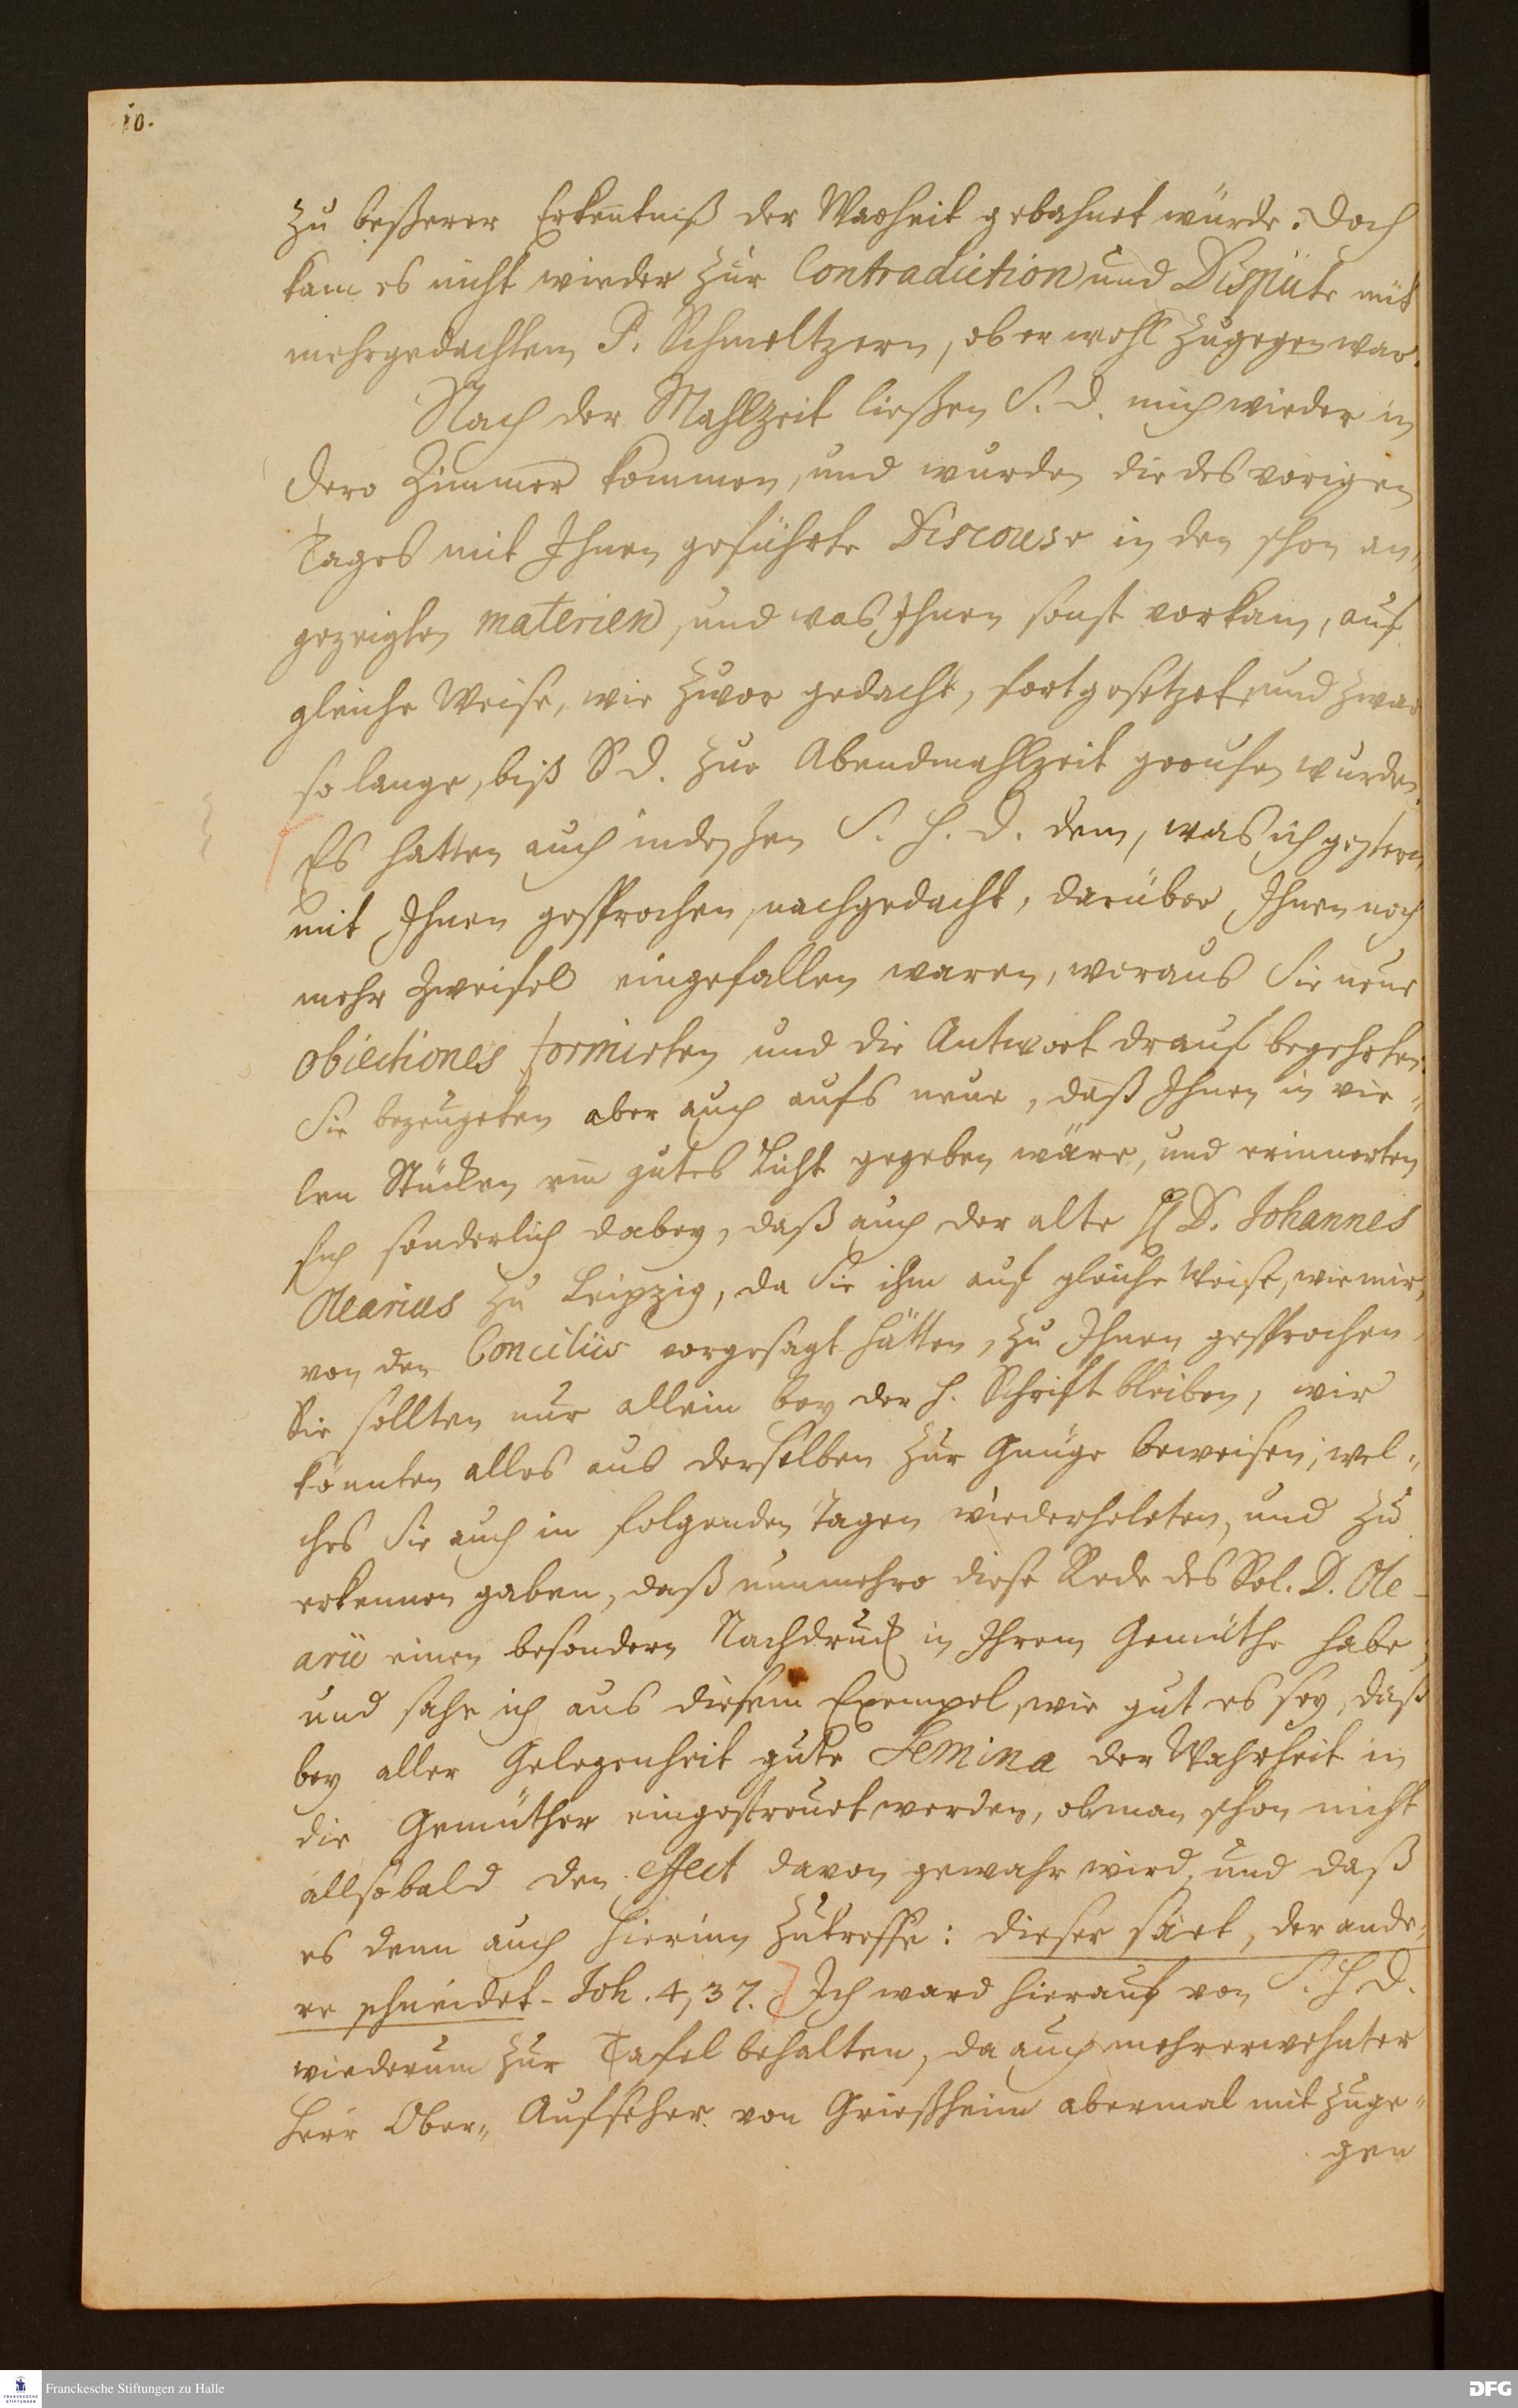 10.
zu beßerer Erkentniß der Warheit gebahnet würde. Doch
kam es nicht wieder zur Contradiction und Dispüte mit
mehrgedachten P. Schmeltzern, ob er wohl zugegen war.
Nach der Mahlzeit ließen S. D. mich wieder in
dero Zimmer kommen, und wurden die des vorigen
Tages mit Ihnen geführte Discourse in den schon an-
gezeigten materien, und was Ihnen sonst vorkam, auf
gleiche Weise, wie zuvor gedacht, fortgesetzet, und zwar
so lange, biß S D. zur Abendmahlzeit geruffen wurden.
Es hatten auch indeßen S. H. D. dem, was ich gestern
mit Ihnen gesprochen, nachgedacht, darüber Ihnen noch
mehr Zweifel eingefallen waren, woraus Sie neue
objectiones formirten und die Antwort drauf begehrten.
Sie bezeugeten aber auch aufs neue, daß Ihnen in vie-
len Stücken ein gutes Licht gegeben wäre, und erinnerten
sich sonderlich dabey, daß auch der alte H D. Johannes
Olearius zu Leipzig, da Sie ihm auf gleiche Weise, wie mir,
von den Conciliis vorgesagt hätten, zu Ihnen gesprochen,
Sie sollten nur allein bey der H. Schrift bleiben, wir
könnten alles aus derselben zur Gnüge beweisen; wel-
ches Sie auch in folgenden Tagen wiederholeten, und zu
erkennen gaben, daß nunmehro diese Rede des Sel. D. Ole-
arii einen besondern Nachdruck in Ihrem Gemüthe habe,
und sahe ich aus diesem Exempel, wie gut es sey, daß
bey aller Gelegenheit gute Semina der Wahrheit in
die Gemüther eingestreuet werden, ob man schon nicht
allsobald den effect davon gewahr wird, und daß
es denn auch hierinn zutreffe: dieser säet, der ande-
re schneidet. Joh. 4, 37. Ich ward hierauf von S. H D.
wiederum zur Tafel behalten, da auch mehrerwehnter
Herr Ober-Aufseher von Grießheim abermal mit zuge-
gen
Franckesche Stiftungen zu Halle
FRANCKESCHE STIFTUNGEN
DFG